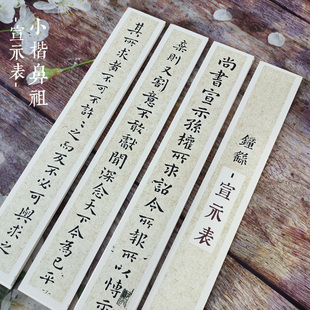 鍾繇
-宣示表-
尚書宣示孫權所求詔令所報所以博示
棄則又割意不敢獻聞深念天下今為已平
其所求者不可不許〻之而反不必可與求之
小楷鼻祖
-宣示表-